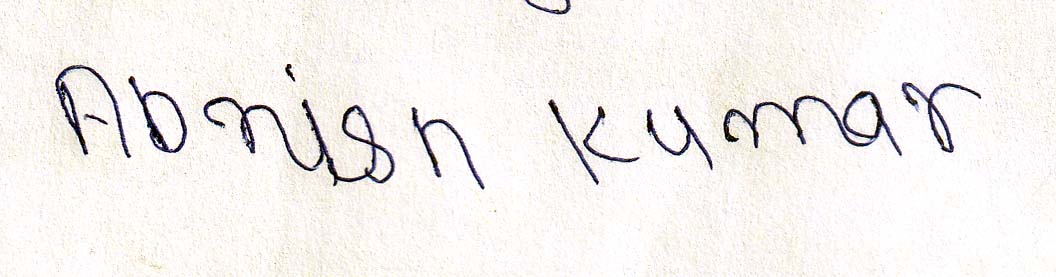 Abnish Kumar